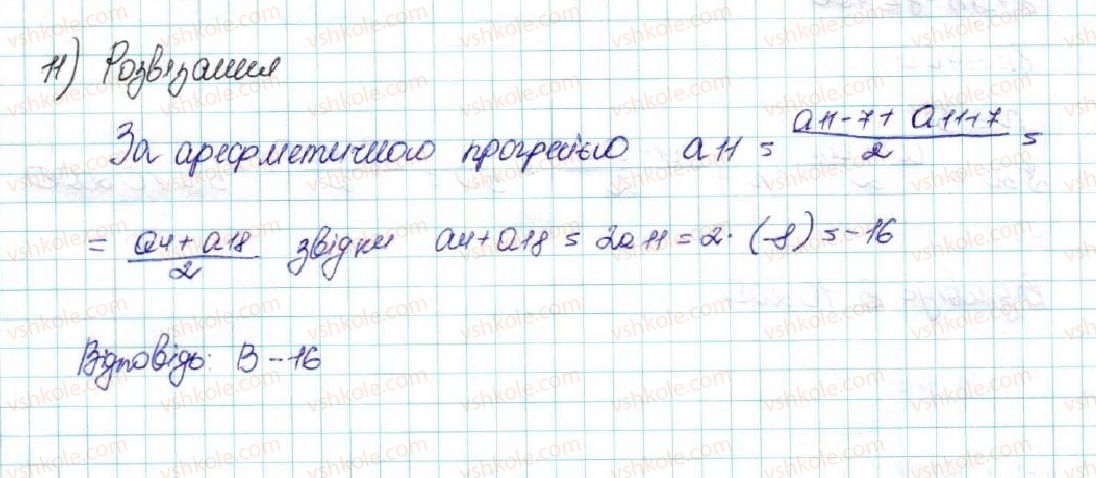 11) Розвізання
За арефметичного прогресією a11 = (a11-7 + a11+7)/2 =
= (a4 + a18)/2 звідки a4 + a18 = 2a11 = 2 · (-8) = -16
Відповідь: В -16